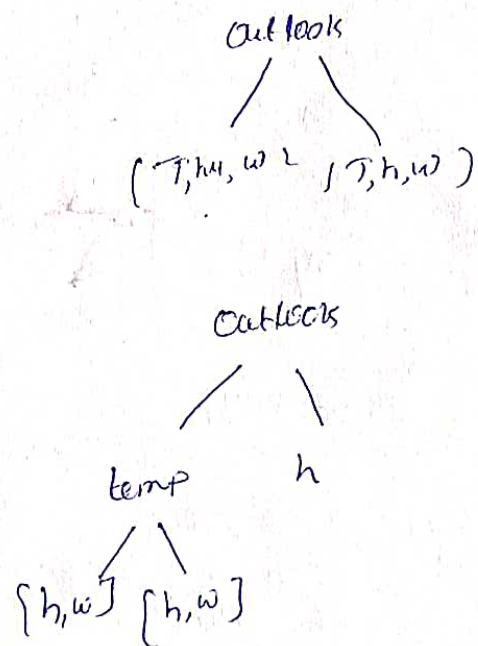 Outlook
(T, hu, w) (T, h, w)
Outlook
temp h
[h, w] [h, w]